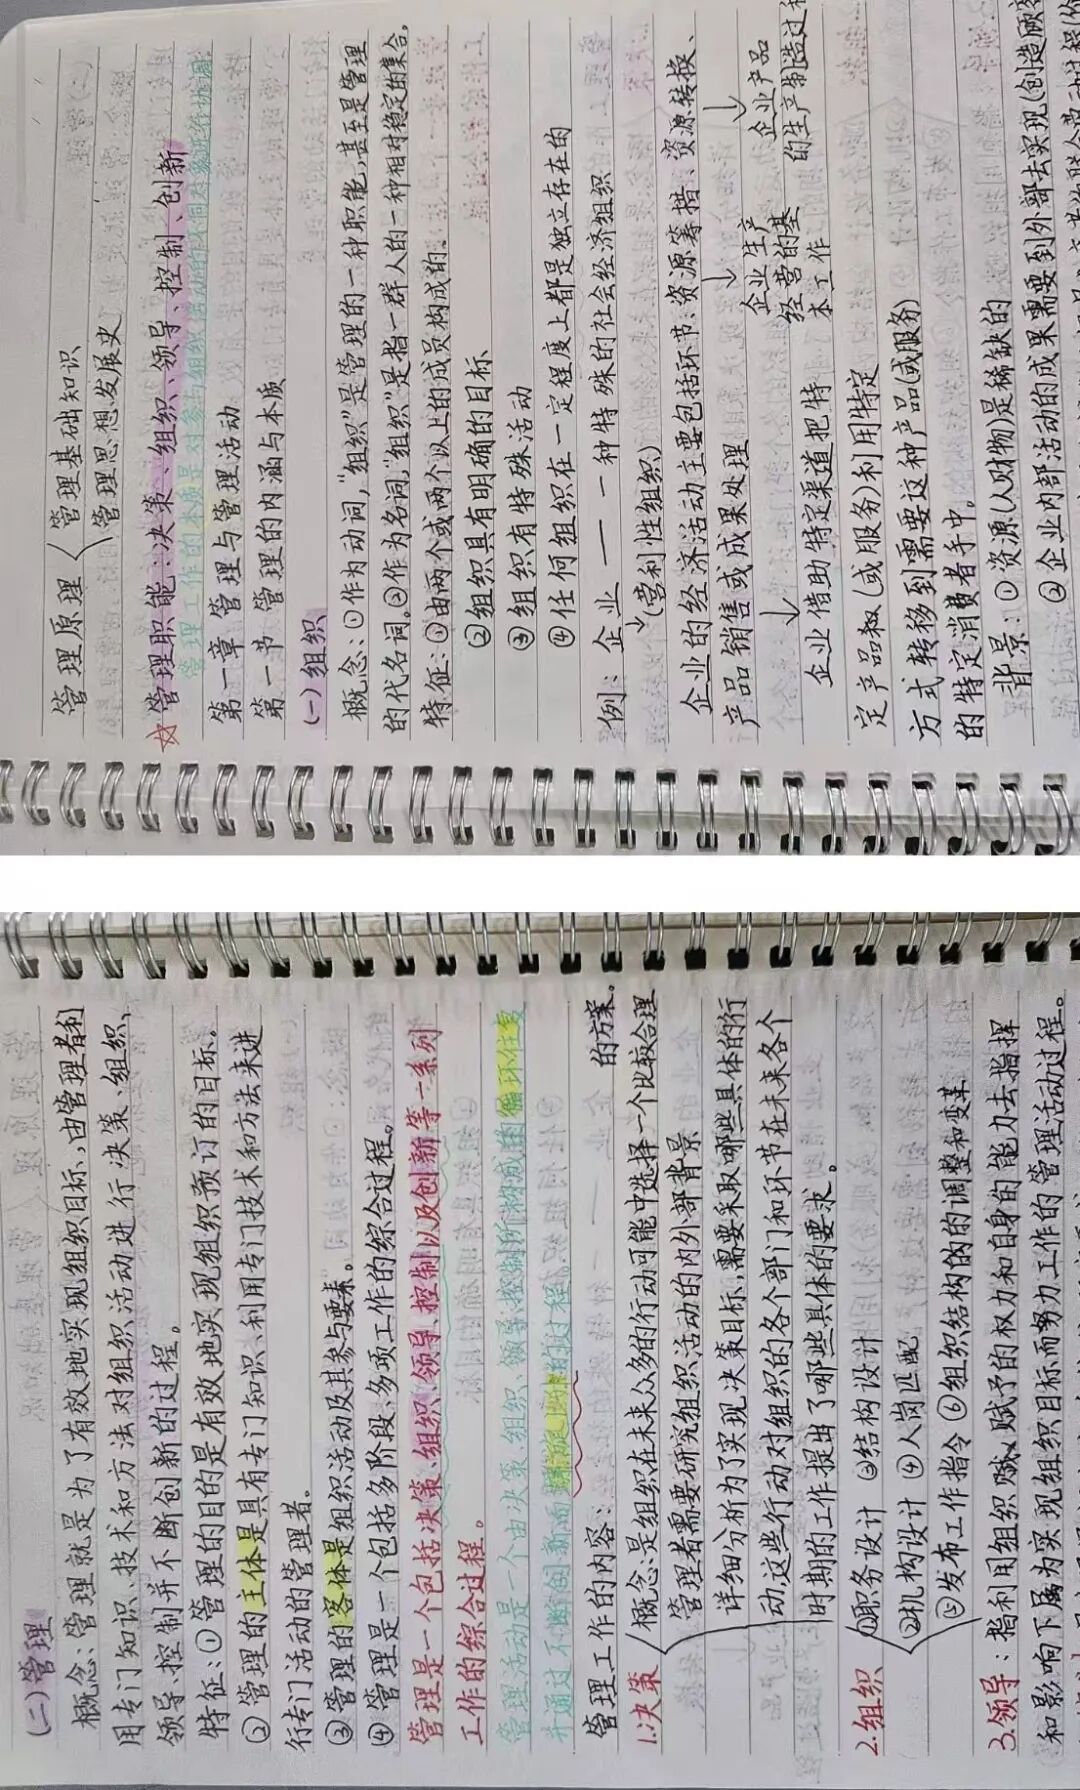 管理原理
管理基础知识
管理思想发展史
☆管理职能:决策、组织、领导、控制、创新
管理工作的本质是对参与组织活动的不同对象进行协调
第一章 管理与管理活动
第一节 管理的内涵与本质
(一)组织
概念:①作为动词,"组织"是管理的一种职能,甚至是管理
的代名词。②作为名词,"组织"是指一群人的一种相对稳定的集合。
特征:①由两个或两个以上的成员构成的。
②组织具有明确的目标
③组织有特殊活动
④任何组织在一定程度上都是独立存在的
例:企业——一种特殊的社会经济组织
↳(营利性组织)
企业的经济活动主要包括环节:资源筹措、资源转换、
产品销售或成果处理
企业生产
经营的基
本工作
企业产品
的生产制造过程
企业借助特定渠道把特
定产品(或服务)利用特定
方式转移到需要这种产品(或服务)
的特定消费者手中。
背景:①资源(人财物)是稀缺的
②企业内部活动的成果需要到外部去实现(创造顾客
(二)管理
概念:管理就是为了有效地实现组织目标,由管理者利
用专门知识、技术和方法对组织活动进行决策、组织、
领导、控制并不断创新的过程。
特征:①管理的目的是有效地实现组织预订的目标。
②管理的主体是具有专门知识、利用专门技术和方法来进
行专门活动的管理者。
③管理的客体是组织活动及其参与要素。
④管理是一个包括多阶段、多项工作的综合过程。
管理是一个包括决策、组织、领导、控制以及创新等一系列
工作的综合过程。
管理活动是一个由决策、组织、领导、控制所构成的循环往复
并通过不断创新而螺旋上升的过程。
管理工作的内容:
1.决策
概念:是组织在未来众多的行动可能中选择一个比较合理
的方案。
管理者需要研究组织活动的内外部背景
详细分析为了实现决策目标,需要采取哪些具体的行
动,这些行动对组织的各个部门和环节在未来各个
时期的工作提出了哪些具体的要求。
2.组织
①职务设计 ③结构设计
②机构设计 ④人岗匹配
⑤发布工作指令 ⑥组织结构的的调整和变革
3.领导:指利用组织赋予的权力和自身的能力去指挥
和影响下属为实现组织目标而努力工作的管理活动过程。